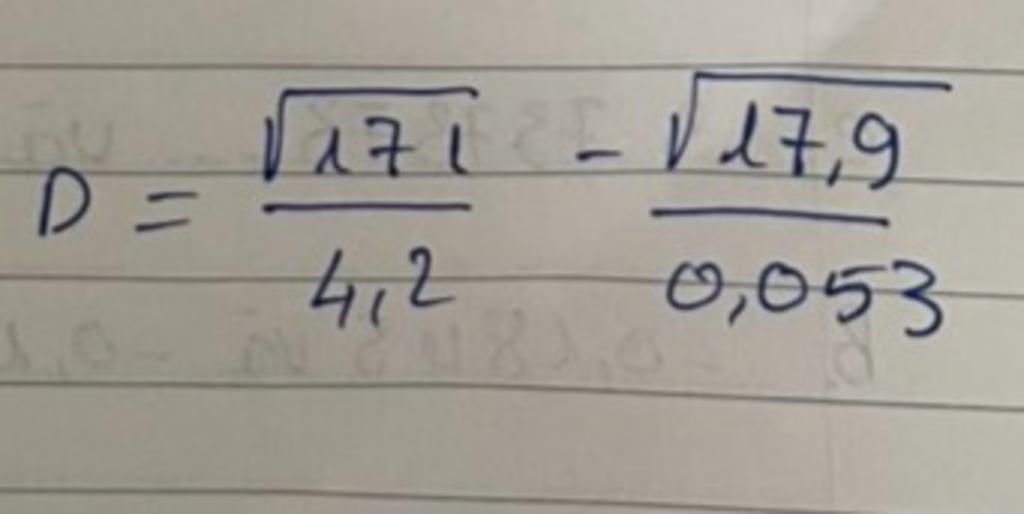 D = √171 / 4,2 - √17,9 / 0,053